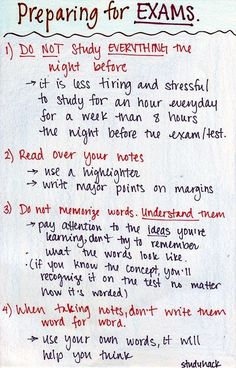 Preparing for EXAMS.
1) DO NOT study EVERYTHING the
night before
→ it is less tiring and stressful
to study for an hour everyday
for a week than 8 hours
the night before the exam/test.
2) Read over your notes
→ use a highlighter
→ write major points on margins
3) Do not memorize words. Understand them
→ pay attention to the ideas you're
learning, don't try to remember
what the words look like.
• (if you know the concept, you'll
recognize it on the test no matter
how it's worded)
4) When taking notes, don't write them
word for word.
→ use your own words, it will
help you think
studyhack